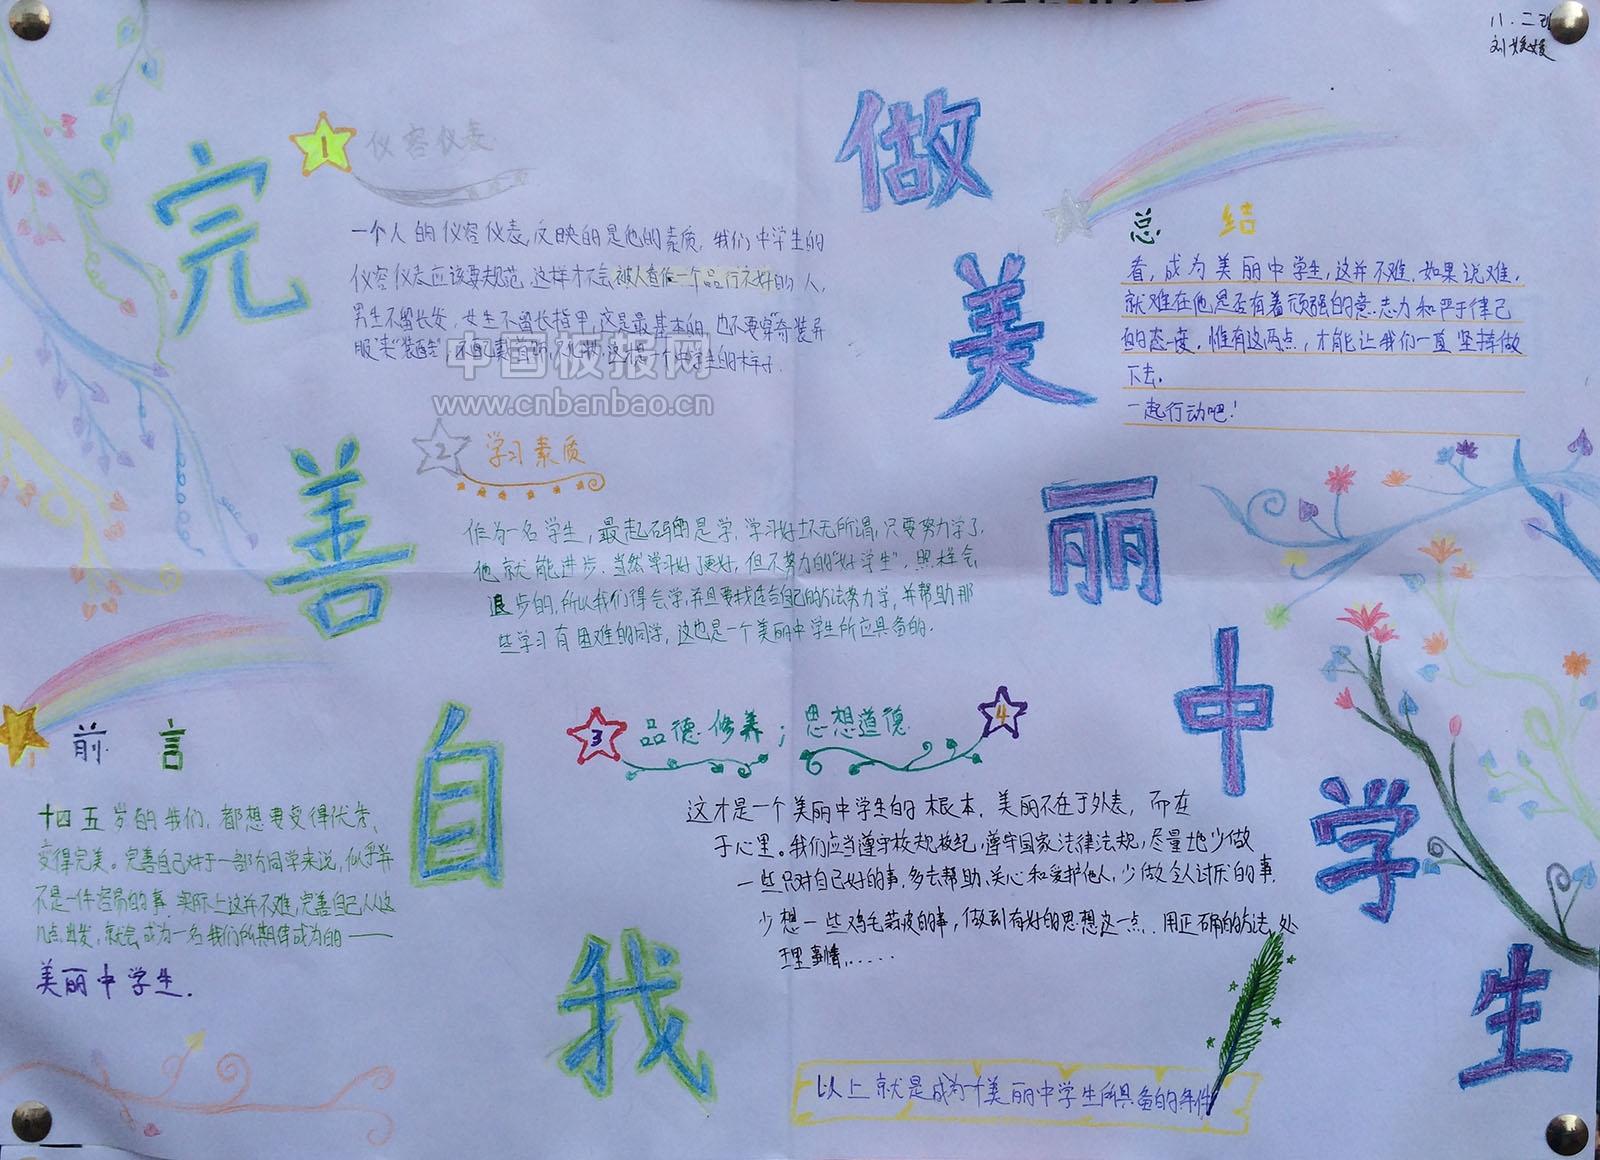 八.二班
刘媛媛
完善自我
做美丽中学生
前言
十四五岁的我们，都想要变得优秀、
变得完美。完善自己对于一部分同学来说，似乎并
不是一件容易的事，实际上这并不难，完善自己从这
几点出发，就会成为一名我们所期待成为的——
美丽中学生.
1 仪容仪表
一个人的仪容仪表，反映的是他的素质，我们中学生的
仪容仪表应该要规范，这样才不会被人看作一个品行不好的人，
男生不留长发，女生不留长指甲，这是最基本的，也不要穿“奇装异
服”来“装酷”，不配戴首饰，不化妆，这才是一个中学生的样子.
中国板报网
www.cnbanbao.cn
2 学习素质
作为一名学生，最起码的是学，学习好坏无所谓，只要努力学了，
他就能进步，当然学习好了更好，但不努力的“好学生”，照样会
退步的，所以我们得会学，并且要找适合自己的方法努力学，并帮助那
些学习有困难的同学，这也是一个美丽中学生所应具备的.
3 品德修养；思想道德 4
这才是一个美丽中学生的根本，美丽不在于外表，而在
于心里。我们应当遵守校规校纪，遵守国家法律法规，尽量地少做
一些只对自己好的事，多去帮助、关心和爱护他人，少做令人讨厌的事.
少想一些鸡毛蒜皮的事，做到有好的思想这一点，用正确的方法处
理事情……
总结
看，成为美丽中学生，这并不难，如果说难，
就难在他是否有着顽强的意志力和严于律己
的态度，惟有这两点，才能让我们一直坚持做
下去.
一起行动吧！
以上就是成为一个美丽中学生所具备的条件